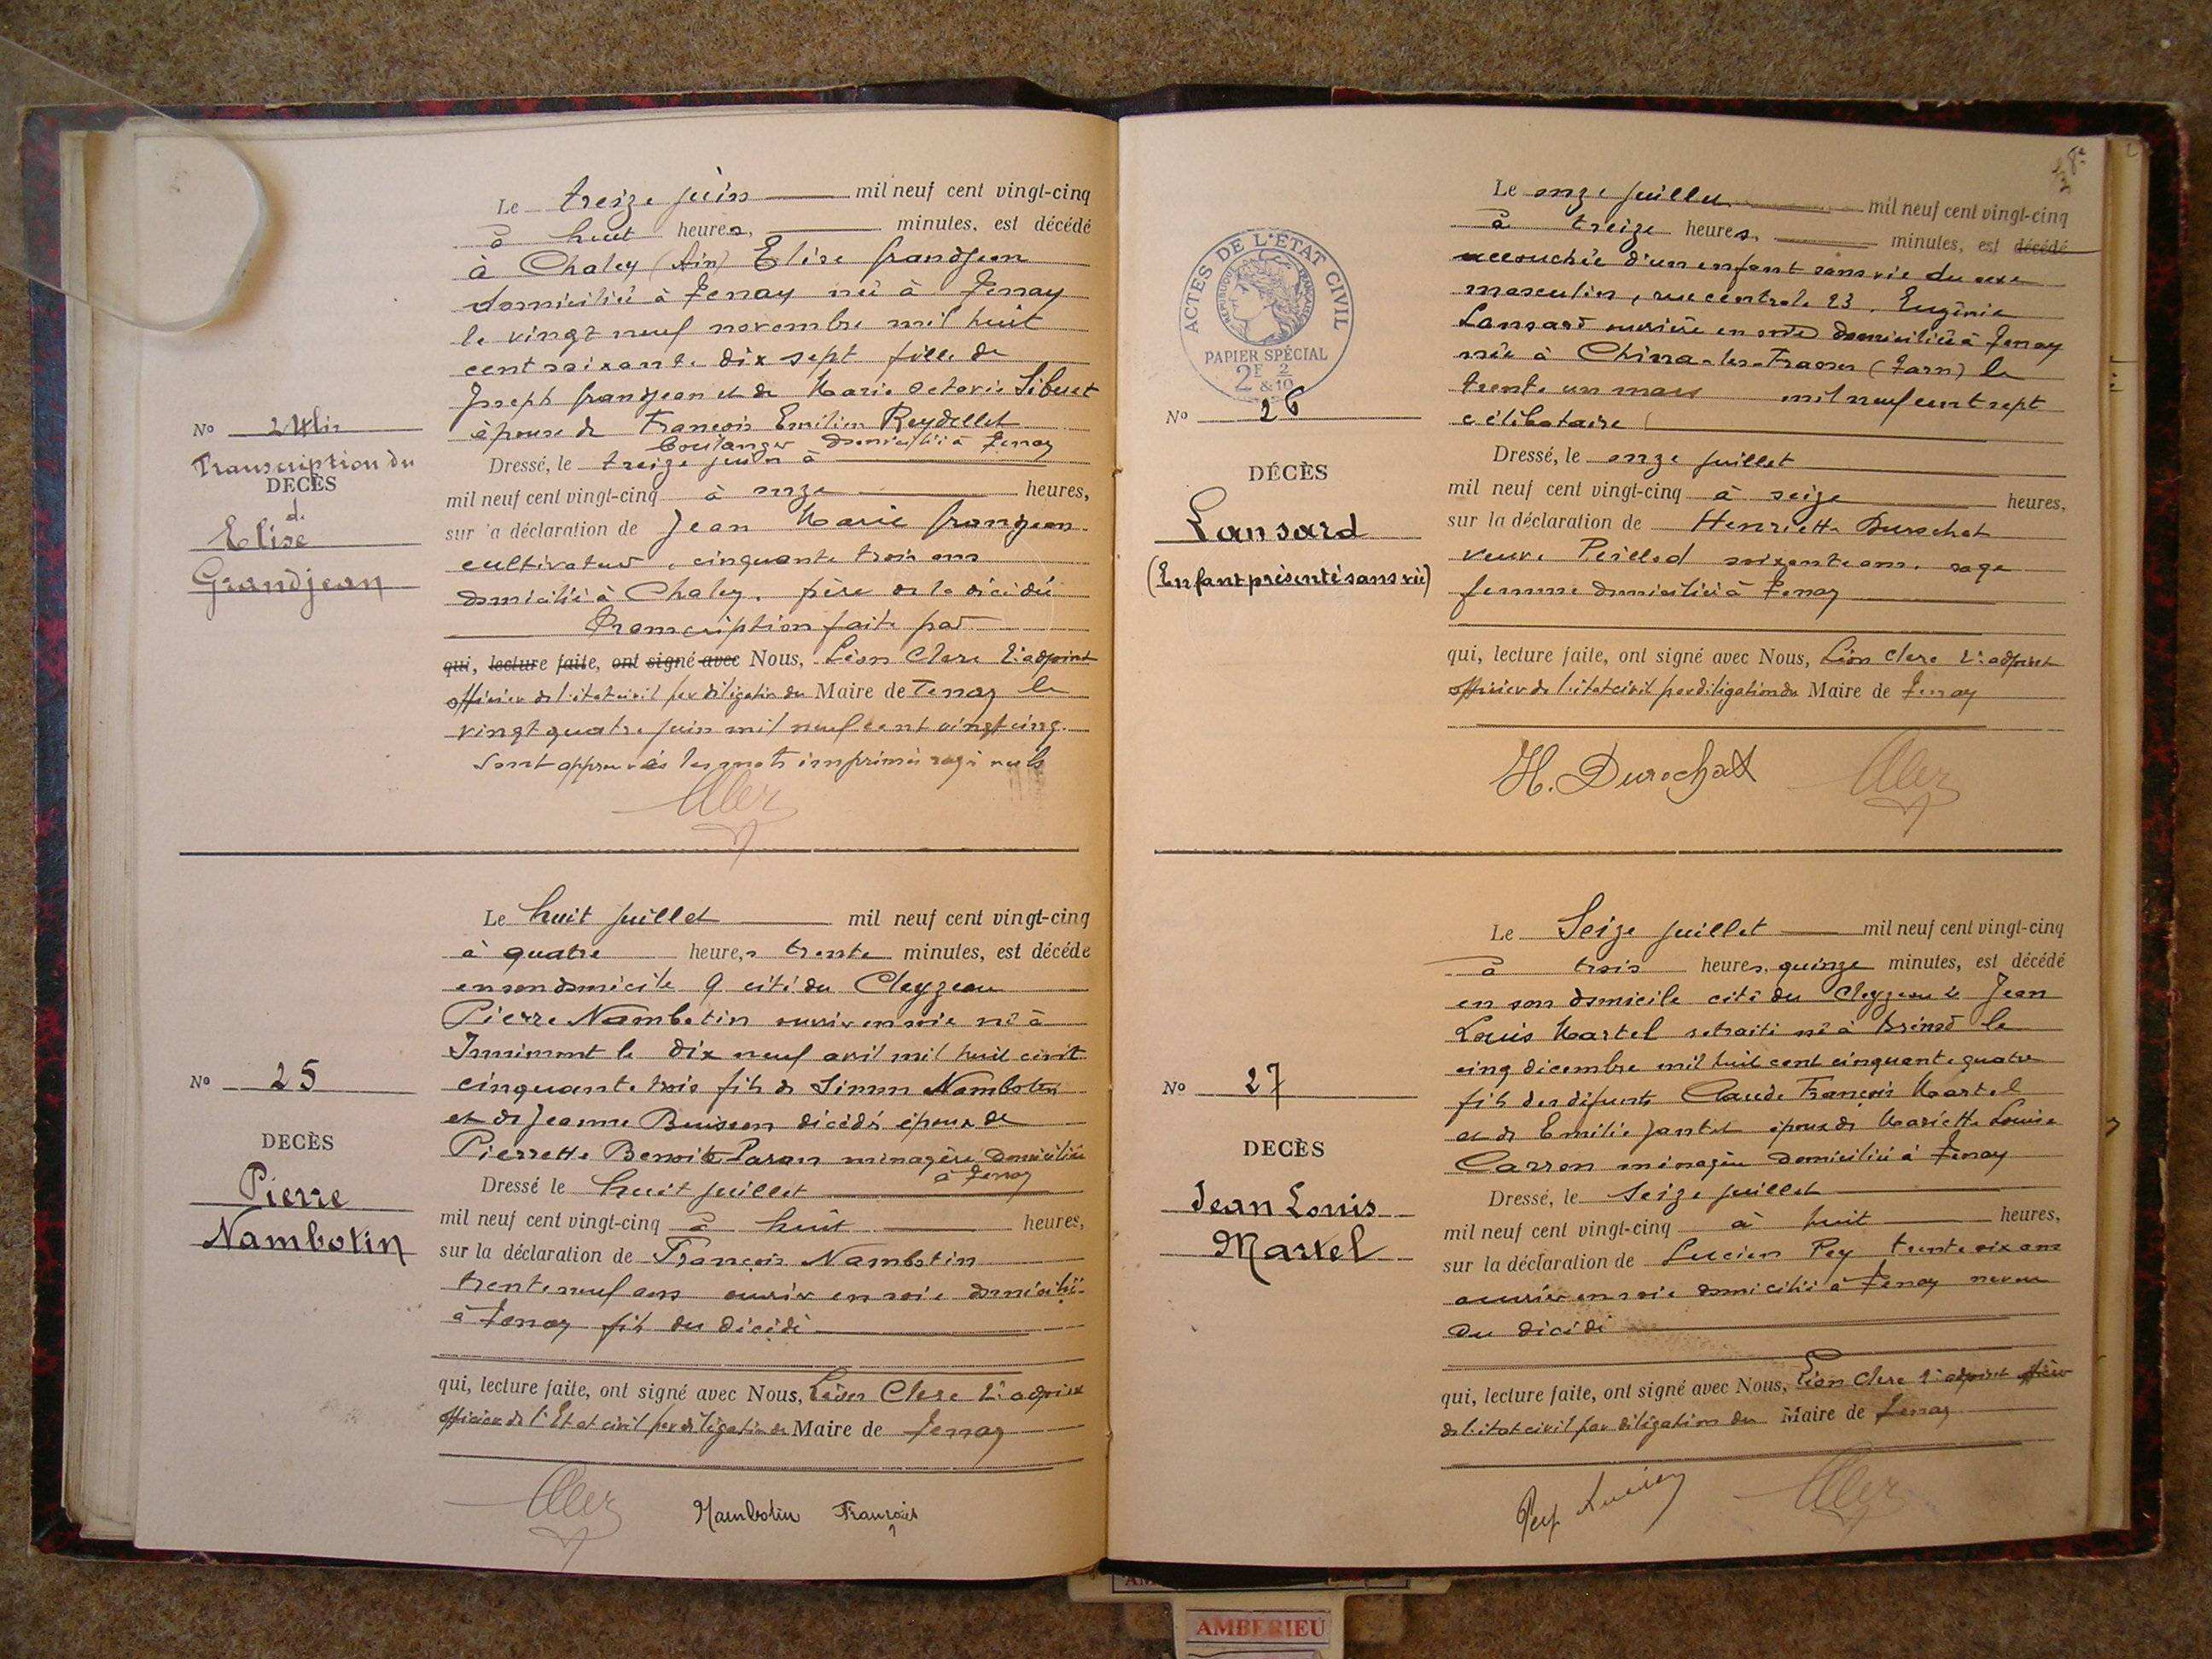 Le treize juin mil neuf cent vingt-cinq
à huit heures, minutes, est décédé
à Chaley (Ain) Elise Grandjean
domiciliée à Tenay née à Tenay
le vingt neuf novembre mil huit
cent soixante dix sept fille de
Joseph Grandjean et de Marie Octavie Sibuet
épouse de François Emilien Reydellet
boulanger domicilié à Tenay
Dressé, le treize juin à
mil neuf cent vingt-cinq à onze heures,
sur la déclaration de Jean Marie Grandjean
cultivateur, cinquante trois ans
domicilié à Chaley, frère de la décédée
Transcription faite par
qui, lecture faite, ont signé avec Nous, Léon Clerc 2e adjoint
officier de l'état civil par délégation du Maire de Tenay le
vingt quatre juin mil neuf cent vingt cinq.
Sont approuvés les mots imprimés rayés nuls
No 24bis
Transcription du
DECÈS
de
Elise
Grandjean
Le huit juillet mil neuf cent vingt-cinq
à quatre heures trente minutes, est décédé
en son domicile 9 cité du Cleyzeau
Pierre Nambotin ouvrier en soie né à
Innimont le dix neuf avril mil huit cent
cinquante trois fils de Simon Nambotin
et de Jeanne Buisson décédés époux de
Pierrette Benoite Paran ménagère domiciliée
à Tenay
Dressé le huit juillet
mil neuf cent vingt-cinq à huit heures,
sur la déclaration de François Nambotin
trente neuf ans ouvrier en soie domicilié
à Tenay fils du décédé
qui, lecture faite, ont signé avec Nous, Léon Clerc 2e adjoint
officier de l'Etat civil par délégation du Maire de Tenay
Nambotin François
No 25
DECÈS
Pierre
Nambotin
Le onze juillet mil neuf cent vingt-cinq
à treize heures, minutes, est décédé
accouchée d'un enfant sans vie du sexe
masculin, rue centrale 23, Eugénie
Lansard ouvrière en soie domiciliée à Tenay
née à (Tarn) le
trente un mars mil neuf cent sept
célibataire
Dressé, le onze juillet
mil neuf cent vingt-cinq à seize heures,
sur la déclaration de Henriette Durochat
veuve Peillod soixante ans, sage
femme domiciliée à Tenay
qui, lecture faite, ont signé avec Nous, Léon Clerc 2e adjoint
officier de l'état civil par délégation du Maire de Tenay
H. Durochat
ACTES DE L'ETAT CIVIL
REPUBLIQUE FRANÇAISE
PAPIER SPÉCIAL
2F 2
& 10
No 26
DÉCÈS
Lansard
(Enfant présenté sans vie)
Le Seize juillet mil neuf cent vingt-cinq
à trois heures, quinze minutes, est décédé
en son domicile cité du Cleyzeau 2 Jean
Louis Martel retraité né à Brénod le
cinq décembre mil huit cent cinquante quatre
fils des défunts Claude François Martel
et de Emilie Jantet époux de Mariette Louise
Carron ménagère domiciliée à Tenay
Dressé, le Seize juillet
mil neuf cent vingt-cinq à huit heures,
sur la déclaration de Lucien Pey trente six ans
ouvrier en soie domicilié à Tenay neveu
du décédé
qui, lecture faite, ont signé avec Nous, Léon Clerc 2e adjoint officier
de l'état civil par délégation du Maire de Tenay
Pey Lucien
No 27
DECÈS
Jean Louis
Martel
AMBERIEU